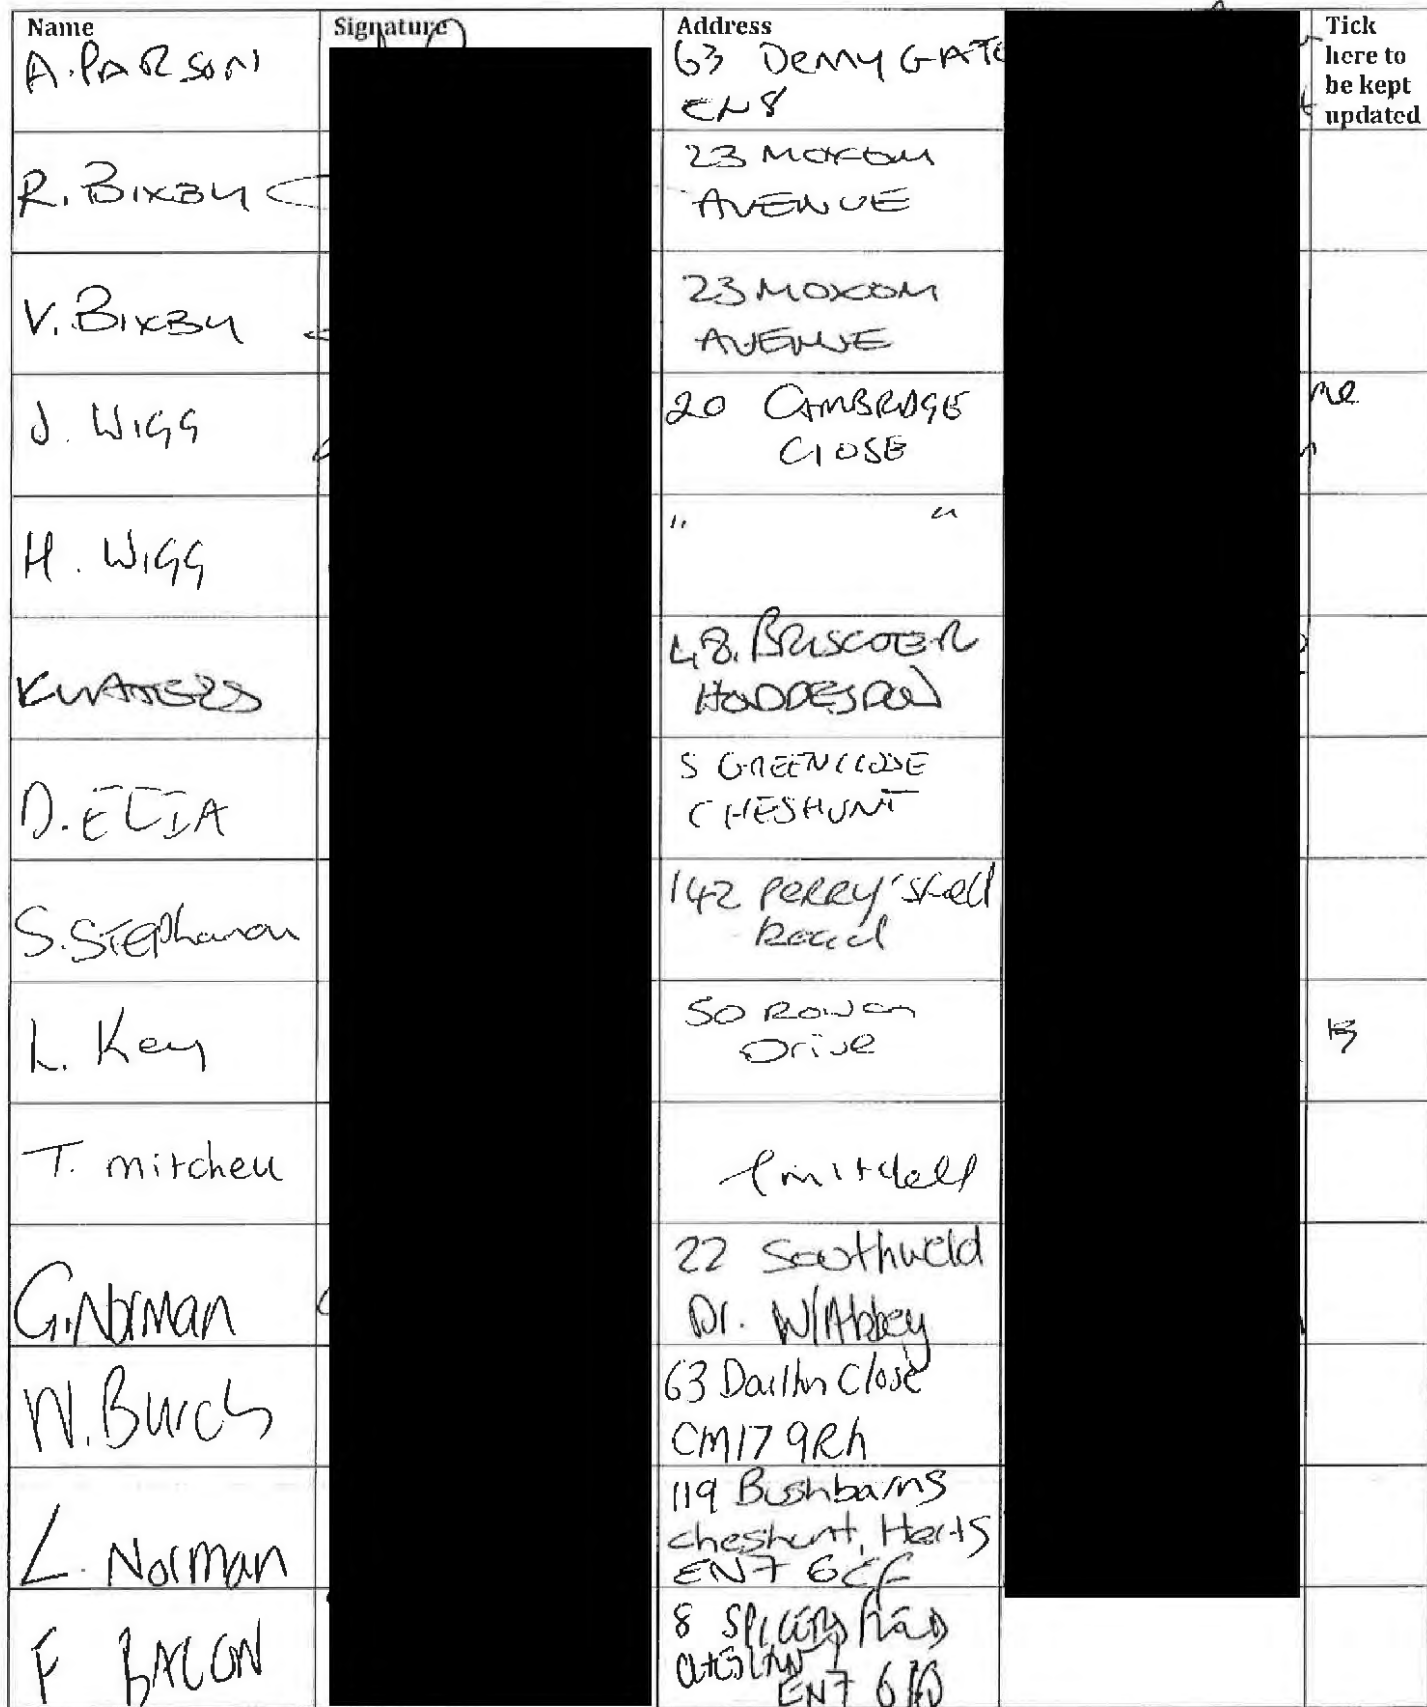 Name Signature Address Tick
here to
be kept
updated
A. PARSON 63 DENNY GATE
EN8
R. BIXBY 23 MOXOM
AVENUE
V. BIXBY 23 MOXOM
AVENUE
J. WIGG 20 CAMBRIDGE
CLOSE
H. WIGG " "
K WATERS 48. 
HODDESDON
D. ELIA 5 GREEN CLOSE
CHESHUNT
S. STEPhanou 142 PERRY
Road
L. Key 50 Rowan
Drive
T. mitchell T mitchell
G. Norman 22 Southweld
Dr. W/Abbey
N. Burch 63 Close
CM17 9Rh
L. Norman 119 Bushbarns
cheshunt, Herts
EN7 6
F BACON 8 SPICERS
EN7 6